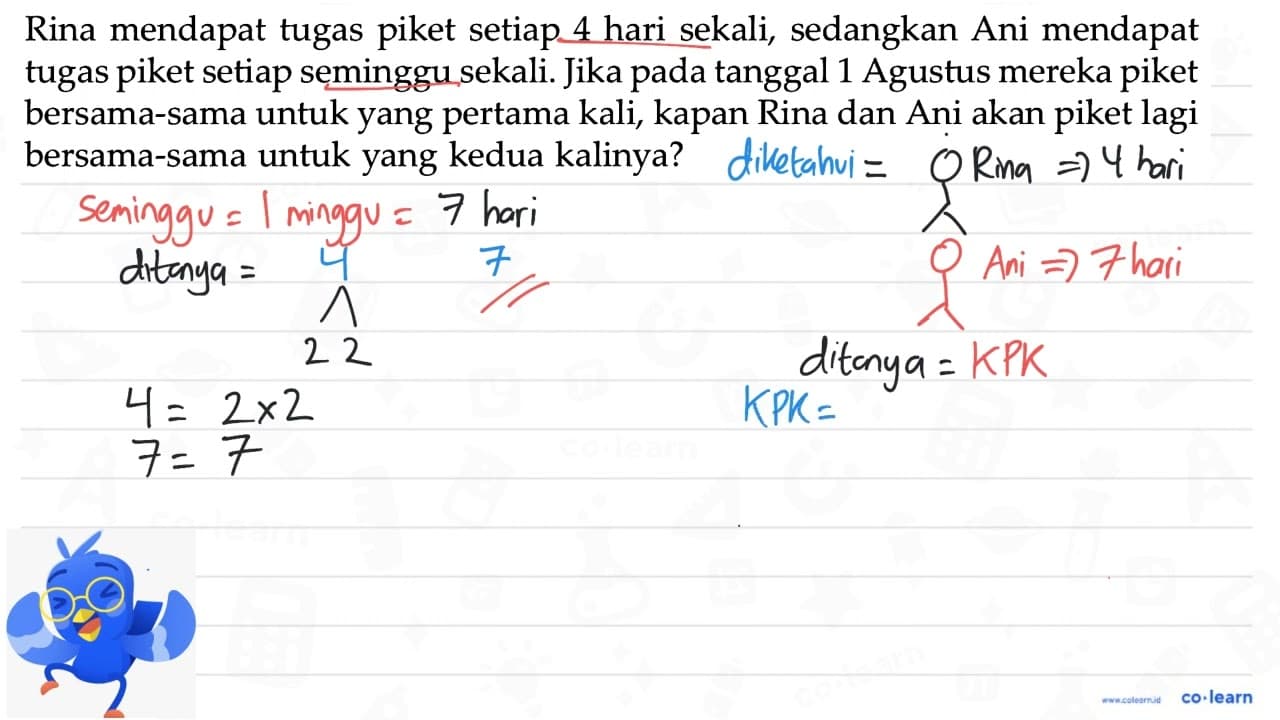 Rina mendapat tugas piket setiap 4 hari sekali, sedangkan Ani mendapat
tugas piket setiap seminggu sekali. Jika pada tanggal 1 Agustus mereka piket
bersama-sama untuk yang pertama kali, kapan Rina dan Ani akan piket lagi
bersama-sama untuk yang kedua kalinya?
diketahui = Rina => 4 hari
seminggu = 1 minggu = 7 hari
Ani => 7 hari
ditanya = 4 7
2 2
ditanya = KPK
4 = 2x2
KPK =
7 = 7
co·learn
www.colearn.id co·learn